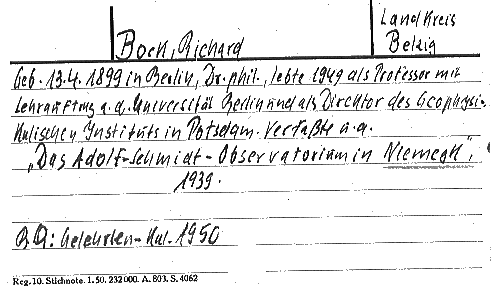 Landkreis
Bock, Richard
Belzig
Geb. 13.4. 1899 in Berlin, Dr. phil., lebte 1949 als Professor mit
Lehrauftrag a.d. Universität Berlin und als Direktor des Geophysi-
kalischen Instituts in Potsdam. Verfaßte u.a.
„Das Adolf-Schmidt-Observatorium in Niemegk",
1939.
BQ: Gelehrten-Kal. 1950
Reg. 10. Stichnote. 1. 50. 232000. A. 803. S. 4062